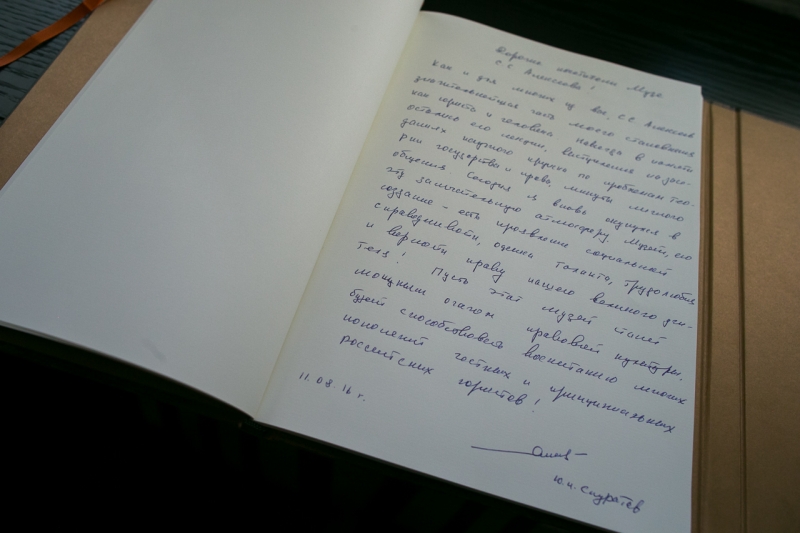 Дорогие посетители Музея
С.С. Алексеева!
Как и для многих из вас, С.С. Алексеев
значительнейшая часть моего становления
как юриста и человека. Навсегда в памяти
остались его лекции, выступления на засе-
даниях научного кружка по проблемам тео-
рии государства и права, минуты личного
общения. Сегодня я вновь окунулся в
эту замечательную атмосферу. Музей, его
создание – есть проявление социальной
справедливости, оценки таланта, трудолюбия
и верности праву нашего великого учи-
теля! Пусть этот музей станет
мощным очагом правовой культуры,
будет способствовать воспитанию многих
поколений честных и принципиальных
российских юристов!
11.08.16 г.